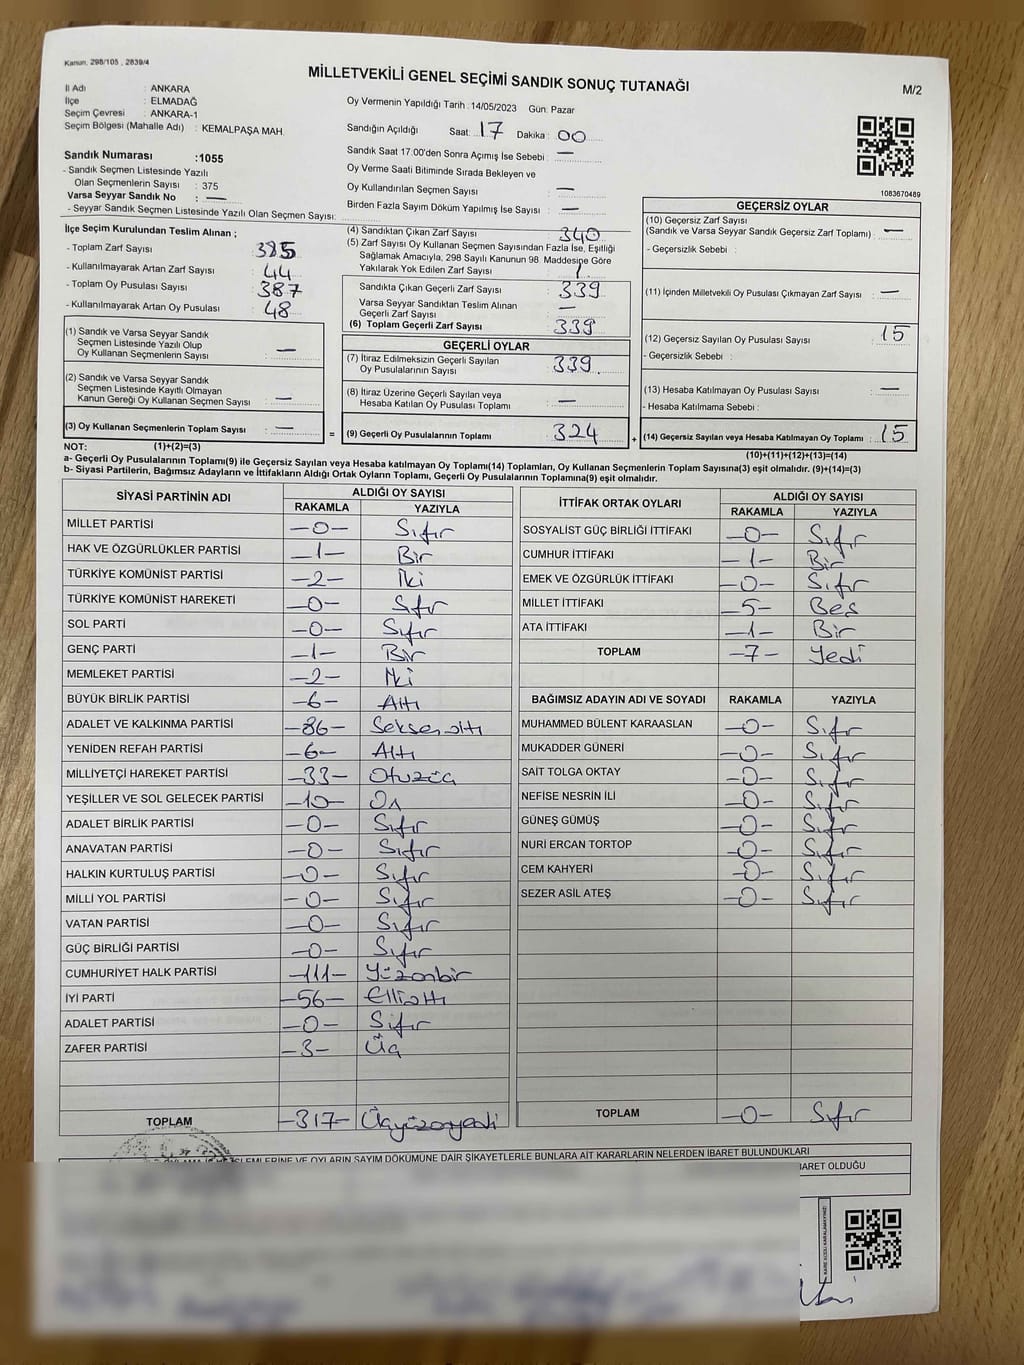 Kanun, 298/105 , 2839/4
MİLLETVEKİLİ GENEL SEÇİMİ SANDIK SONUÇ TUTANAĞI
M/2
İl Adı : ANKARA
İlçe : ELMADAĞ
Seçim Çevresi : ANKARA-1
Seçim Bölgesi (Mahalle Adı) : KEMALPAŞA MAH.
Sandık Numarası :1055
- Sandık Seçmen Listesinde Yazılı
Olan Seçmenlerin Sayısı : 375
Varsa Seyyar Sandık No : —
- Seyyar Sandık Seçmen Listesinde Yazılı Olan Seçmen Sayısı:
Oy Vermenin Yapıldığı Tarih :14/05/2023 Gün: Pazar
Sandığın Açıldığı Saat: 17 Dakika : 00
Sandık Saat 17.00'den Sonra Açımış İse Sebebi : —
Oy Verme Saati Bitiminde Sırada Bekleyen ve
Oy Kullandırılan Seçmen Sayısı : —
Birden Fazla Sayım Döküm Yapılmış İse Sayısı : —
1083670469
İlçe Seçim Kurulundan Teslim Alınan ;
- Toplam Zarf Sayısı : 385
- Kullanılmayarak Artan Zarf Sayısı : 44
- Toplam Oy Pusulası Sayısı : 387
- Kullanılmayarak Artan Oy Pusulası : 48
(1) Sandık ve Varsa Seyyar Sandık
Seçmen Listesinde Yazılı Olup
Oy Kullanan Seçmenlerin Sayısı : —
(2) Sandık ve Varsa Seyyar Sandık
Seçmen Listesinde Kayıtlı Olmayan
Kanun Gereği Oy Kullanan Seçmen Sayısı : —
(3) Oy Kullanan Seçmenlerin Toplam Sayısı : —
(4) Sandıktan Çıkan Zarf Sayısı : 340
(5) Zarf Sayısı Oy Kullanan Seçmen Sayısından Fazla İse, Eşitliği
Sağlamak Amacıyla, 298 Sayılı Kanunun 98. Maddesine Göre
Yakılarak Yok Edilen Zarf Sayısı : 1
Sandıkta Çıkan Geçerli Zarf Sayısı : 339
Varsa Seyyar Sandıktan Teslim Alınan
Geçerli Zarf Sayısı : —
(6) Toplam Geçerli Zarf Sayısı : 339
GEÇERLİ OYLAR
(7) İtiraz Edilmeksizin Geçerli Sayılan
Oy Pusulalarının Sayısı : 339
(8) İtiraz Üzerine Geçerli Sayılan veya
Hesaba Katılan Oy Pusulası Toplamı : —
= (9) Geçerli Oy Pusulalarının Toplamı : 324
GEÇERSİZ OYLAR
(10) Geçersiz Zarf Sayısı
(Sandık ve Varsa Seyyar Sandık Geçersiz Zarf Toplamı) : —
- Geçersizlik Sebebi :
(11) İçinden Milletvekili Oy Pusulası Çıkmayan Zarf Sayısı : —
(12) Geçersiz Sayılan Oy Pusulası Sayısı : 15
- Geçersizlik Sebebi :
(13) Hesaba Katılmayan Oy Pusulası Sayısı : —
- Hesaba Katılmama Sebebi :
+ (14) Geçersiz Sayılan veya Hesaba Katılmayan Oy Toplamı : 15
NOT: (1)+(2)=(3)
(10)+(11)+(12)+(13)=(14)
a- Geçerli Oy Pusulalarının Toplamı(9) ile Geçersiz Sayılan veya Hesaba katılmayan Oy Toplamı(14) Toplamları, Oy Kullanan Seçmenlerin Toplam Sayısına(3) eşit olmalıdır. (9)+(14)=(3)
b- Siyasi Partilerin, Bağımsız Adayların ve İttifakların Aldığı Ortak Oyların Toplamı, Geçerli Oy Pusulalarının Toplamına(9) eşit olmalıdır.
SİYASİ PARTİNİN ADI ALDIĞI OY SAYISI
RAKAMLA YAZIYLA
MİLLET PARTİSİ —0— Sıfır
HAK VE ÖZGÜRLÜKLER PARTİSİ —1— Bir
TÜRKİYE KOMÜNİST PARTİSİ —2— İki
TÜRKİYE KOMÜNİST HAREKETİ —0— Sıfır
SOL PARTİ —0— Sıfır
GENÇ PARTİ —1— Bir
MEMLEKET PARTİSİ —2— İki
BÜYÜK BİRLİK PARTİSİ —6— Altı
ADALET VE KALKINMA PARTİSİ —86— Seksenaltı
YENİDEN REFAH PARTİSİ —6— Altı
MİLLİYETÇİ HAREKET PARTİSİ —33— Otuzüç
YEŞİLLER VE SOL GELECEK PARTİSİ —10— On
ADALET BİRLİK PARTİSİ —0— Sıfır
ANAVATAN PARTİSİ —0— Sıfır
HALKIN KURTULUŞ PARTİSİ —0— Sıfır
MİLLİ YOL PARTİSİ —0— Sıfır
VATAN PARTİSİ —0— Sıfır
GÜÇ BİRLİĞİ PARTİSİ —0— Sıfır
CUMHURİYET HALK PARTİSİ —111— Yüzonbir
İYİ PARTİ —56— Ellialtı
ADALET PARTİSİ —0— Sıfır
ZAFER PARTİSİ —3— Üç
TOPLAM —317— Üçyüzonyedi
İTTİFAK ORTAK OYLARI ALDIĞI OY SAYISI
RAKAMLA YAZIYLA
SOSYALİST GÜÇ BİRLİĞİ İTTİFAKI —0— Sıfır
CUMHUR İTTİFAKI —1— Bir
EMEK VE ÖZGÜRLÜK İTTİFAKI —0— Sıfır
MİLLET İTTİFAKI —5— Beş
ATA İTTİFAKI —1— Bir
TOPLAM —7— Yedi
BAĞIMSIZ ADAYIN ADI VE SOYADI RAKAMLA YAZIYLA
MUHAMMED BÜLENT KARAASLAN —0— Sıfır
MUKADDER GÜNERİ —0— Sıfır
SAİT TOLGA OKTAY —0— Sıfır
NEFİSE NESRİN İLİ —0— Sıfır
GÜNEŞ GÜMÜŞ —0— Sıfır
NURİ ERCAN TORTOP —0— Sıfır
CEM KAHYERİ —0— Sıfır
SEZER ASIL ATEŞ —0— Sıfır
TOPLAM —0— Sıfır
İŞLEMLERİNE VE OYLARIN SAYIM DÖKÜMÜNE DAİR ŞİKAYETLERLE BUNLARA AİT KARARLARIN NELERDEN İBARET BULUNDUKLARI
İBARET OLDUĞU